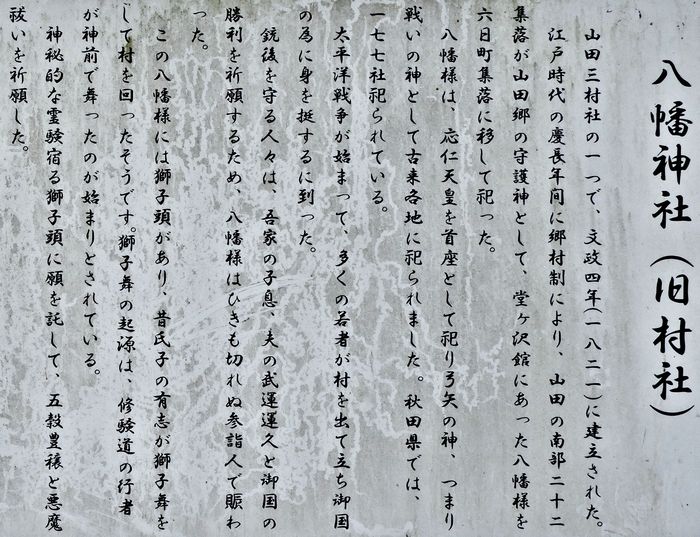 八幡神社(旧村社)
山田三村社の一つで、文政四年(一八二一)に建立された。
江戸時代の慶長年間に郷村制により、山田の南部二十二
集落が山田郷の守護神として、堂ヶ沢館にあった八幡様を
六日町集落に移して祀った。
八幡様は、応仁天皇を首座として祀り弓矢の神、つまり
戦いの神として古来各地に祀られました。秋田県では、
一七七社祀られている。
太平洋戦争が始まって、多くの若者が村を出て立ち御国
の為に身を挺するに到った。
銃後を守る人々は、吾家の子息、夫の武運運久と御国の
勝利を祈願するため、八幡様はひきも切れぬ参詣人で賑わ
った。
この八幡様には獅子頭があり、昔氏子の有志が獅子舞を
して村を回ったそうです。獅子舞の起源は、修験道の行者
が神前で舞ったのが始まりとされている。
神秘的な霊験宿る獅子頭に願を託して、五穀豊穣と悪魔
祓いを祈願した。